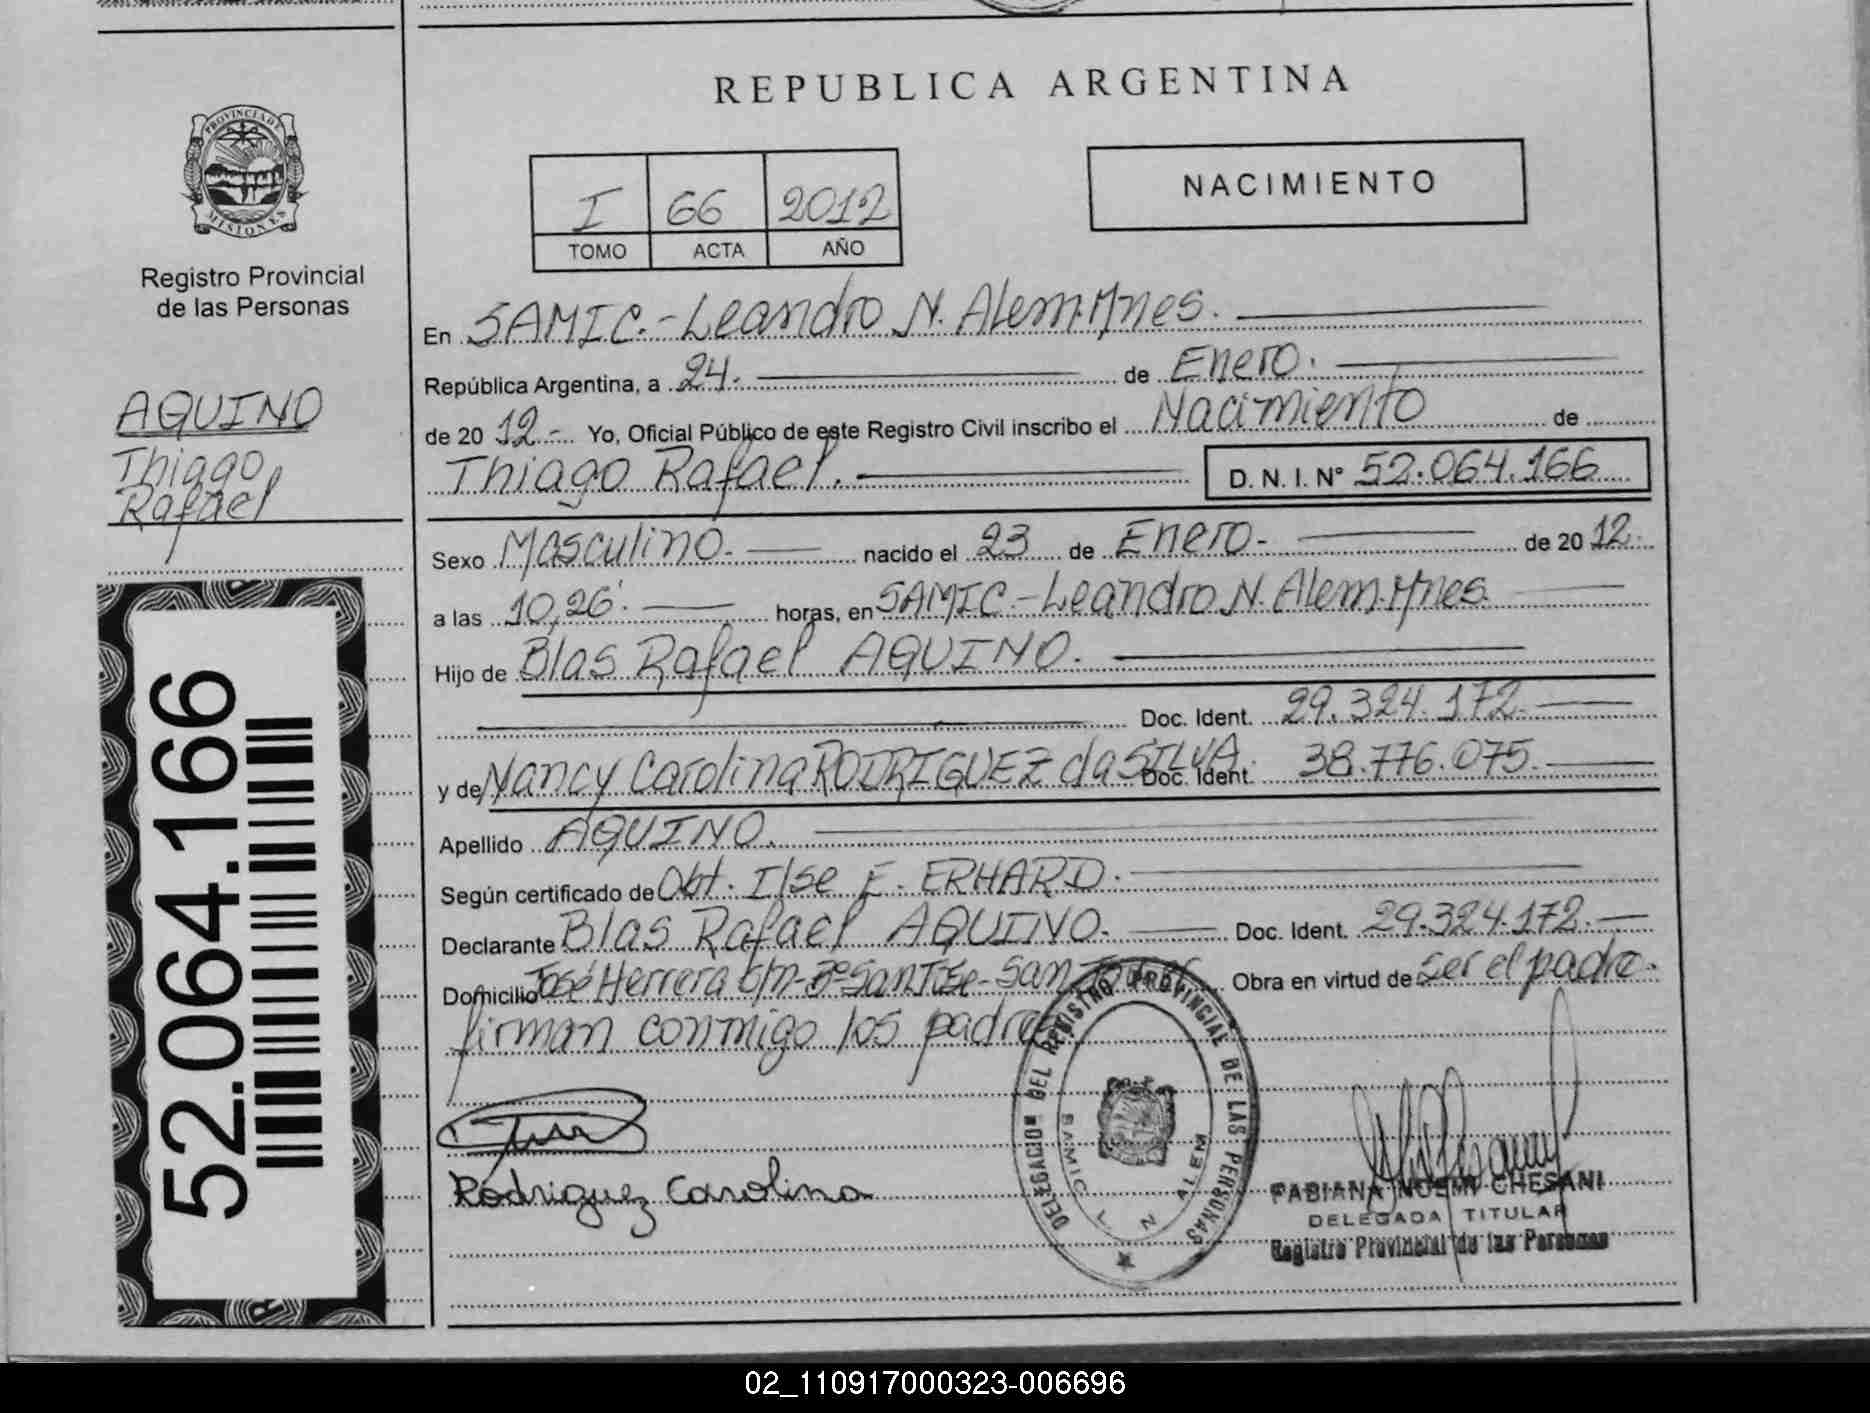 REPUBLICA ARGENTINA
PROVINCIA DE MISIONES
Registro Provincial
de las Personas
I 66 2012
TOMO ACTA AÑO
NACIMIENTO
AQUINO
Thiago
Rafael
52.064.166
En SAMIC.-Leandro N. Alem.Mnes.
República Argentina, a 24. de Enero.
de 2012.- Yo, Oficial Público de este Registro Civil inscribo el Nacimiento de
Thiago Rafael. D. N. I. N° 52.064.166
Sexo Masculino. nacido el 23 de Enero.- de 2012.
a las 10,26. horas, en SAMIC.-Leandro N. Alem.Mnes.
Hijo de Blas Rafael AQUINO.
Doc. Ident. 29.324.172.
y de Nancy Carolina RODRIGUEZ da SILVA. Doc. Ident. 38.776.075.
Apellido AQUINO.
Según certificado de Obt. Ilse E. ERHARD.
Declarante Blas Rafael AQUINO. Doc. Ident. 29.324.172.
Domicilio José Herrera s/n- Bº San José- San Obra en virtud de ser el padre.
firman conmigo los padres
Rodriguez Carolina
DELEGACION DEL REGISTRO PROVINCIAL DE LAS PERSONAS
SAMIC L N ALEM
FABIANA NOEMI CHESANI
DELEGADA TITULAR
Registro Provincial de las Personas
02_110917000323-006696